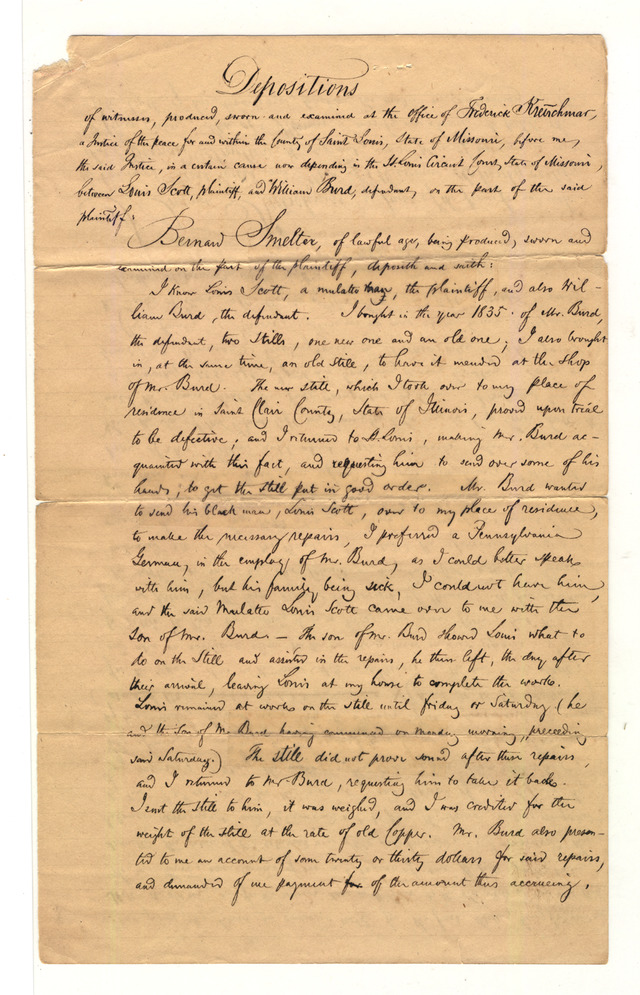 Depositions
of witnesses, produced, sworn and examined at the office of Frederick Kretschmar,
a Justice of the peace for and within the County of Saint Louis, State of Missouri, before me,
the said Justice, in a certain cause now depending in the St. Louis Circuit Court, State of Missouri,
between Louis Scott, plaintiff, and William Burd, defendant, on the part of the said
plaintiff:
Bernard Smelter, of lawful age, being produced, sworn and
examined on the part of the plaintiff, deposeth and saith:
I know Louis Scott, a mulatto man, the plaintiff, and also Wil-
liam Burd, the defendant. I bought in the year 1835 of Mr. Burd,
the defendant, two stills, one new one and an old one; I also brought
in, at the same time, an old still, to have it mended at the shop
of Mr. Burd. The new still, which I took over to my place of
residence in Saint Clair County, State of Illinois, proved upon trial
to be defective; and I returned to St. Louis, making Mr. Burd ac-
quainted with this fact, and requesting him to send over some of his
hands, to get the still put in good order. Mr. Burd wanted
to send his black man, Louis Scott, over to my place of residence,
to make the necessary repairs, I preferred a Pennsylvania
German, in the employ of Mr. Burd, as I could better speak
with him, but his family being sick, I could not have him,
and the said Mulatto Louis Scott came over to me with the
son of Mr. Burd. – The son of Mr. Burd showed Louis what to
do on the still and assisted in the repairs, he then left, the day after
their arrival, leaving Louis at my house to complete the work.
Louis remained at work on the still until friday or Saturday (he
and the son of Mr Burd having commenced on monday morning, preceeding
said Saturday.) The still did not prove sound after these repairs,
and I returned to Mr Burd, requesting him to take it back.
I sent the still to him, it was weighed, and I was credited for the
weight of the still at the rate of old Copper. Mr. Burd also presen-
ted to me an account of some twenty or thirty dollars for said repairs,
and demanded of me payment of the amount thus accrueing.